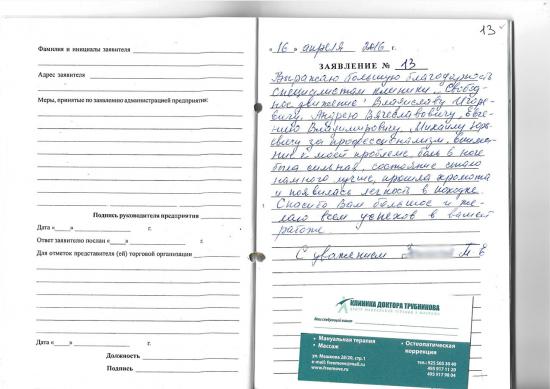 Фамилия и инициалы заявителя
Адрес заявителя
Меры, принятые по заявлению администрацией предприятия:
Подпись руководителя предприятия
Дата « » г.
Ответ заявителю послан « » г.
Для отметок представителя (ей) торговой организации
Дата « » г.
Должность
Подпись
13
« 16 » апреля 2016 г.
ЗАЯВЛЕНИЕ № 13
Выражаю большую благодарность
специалистам клиники „Свобод-
ное движение" Владиславу Игоре-
вичу, Андрею Вячеславовичу, Евге-
нию Владимировичу, Михаилу Юрь-
евичу за профессионализм, внима-
ние к моей проблеме. Боль в ноге
была сильная, состояние стало
намного лучше, прошла хромота
и появилась легкость в походке.
Спасибо Вам большое и же-
лаю всем успехов в вашей
работе.
С уважением Т Е
КЛИНИКА ДОКТОРА ТРУБНИКОВА
ЦЕНТР МАНУАЛЬНОЙ ТЕРАПИИ И МАССАЖА
• Мануальная терапия
• Массаж
• Остеопатическая
коррекция
ул. Машкова 28/20, стр.1
e-mail: freemove@mail.ru
www.freemove.ru
тел.: 925 505 30 40
495 917 11 20
495 917 98 04